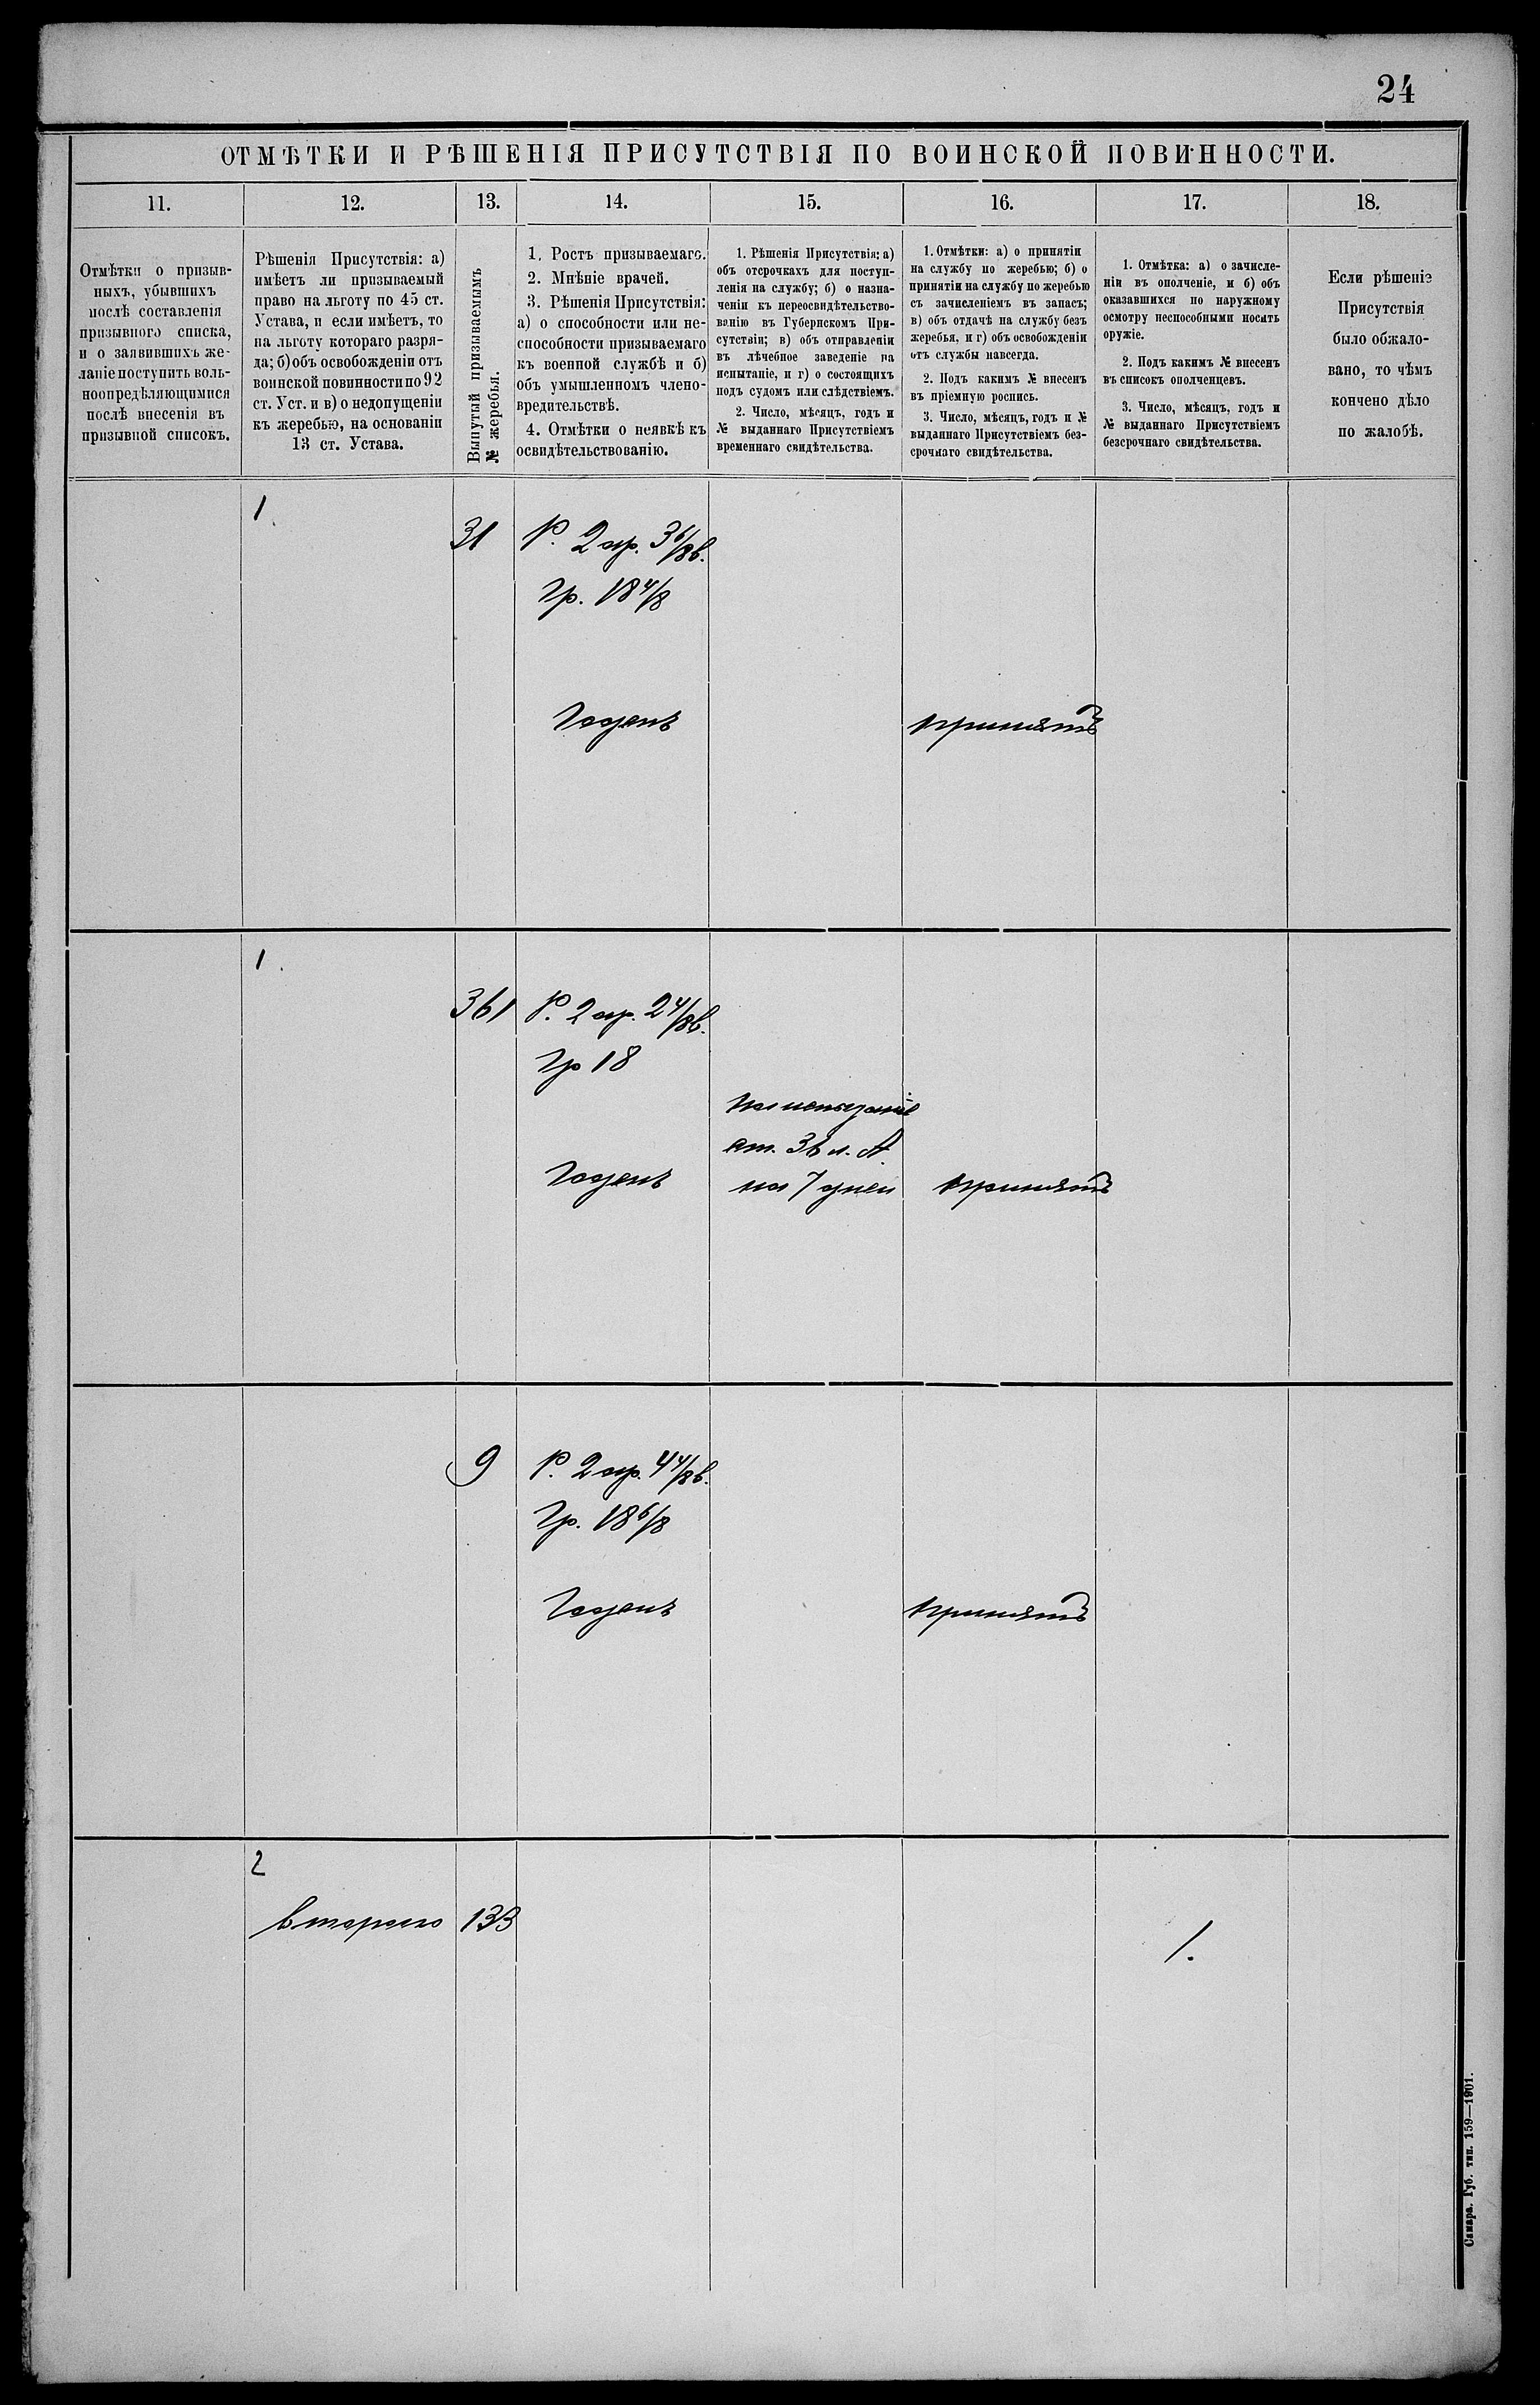 24
ОТМѢТКИ И РѢШЕНІЯ ПРИСУТСТВІЯ ПО ВОИНСКОЙ ПОВИННОСТИ.
11.
12.
13.
14.
15.
16.
17.
18.
Отмѣтки о призыв-
ныхъ, убывшихъ
послѣ составленія
призывного списка,
и о заявившихъ же-
ланіе поступить воль-
ноопредѣляющимися
послѣ внесенія въ
призывной списокъ.
Рѣшенія Присутствія: а)
имѣетъ ли призываемый
право на льготу по 45 ст.
Устава, и если имѣетъ, то
на льготу котораго разря-
да; б) объ освобожденіи отъ
воинской повинности по 92
ст. Уст. и в) о недопущеніи
къ жеребью, на основаніи
13 ст. Устава.
Вынутый призываемымъ
№ жеребья.
1. Ростъ призываемаго.
2. Мнѣніе врачей.
3. Рѣшенія Присутствія:
а) о способности или не-
способности призываемаго
къ военной службѣ и б)
объ умышленномъ члено-
вредительствѣ.
4. Отмѣтки о неявкѣ къ
освидѣтельствованію.
1. Рѣшенія Присутствія: а)
объ отсрочкахъ для поступ-
ленія на службу; б) о назна-
ченіи къ переосвидѣтельство-
ванію въ Губернскомъ При-
сутствіи; в) объ отправленіи
въ лѣчебное заведеніе на
испытаніе, и г) о состоящихъ
подъ судомъ или слѣдствіемъ.
2. Число, мѣсяцъ, годъ и
№ выданнаго Присутствіемъ
временнаго свидѣтельства.
1. Отмѣтки: а) о принятіи
на службу по жеребью; б) о
принятіи на службу по жеребью
съ зачисленіемъ въ запасъ;
в) объ отдачѣ на службу безъ
жеребья, и г) объ освобожденіи
отъ службы навсегда.
2. Подъ какимъ № внесенъ
въ пріемную роспись.
3. Число, мѣсяцъ, годъ и №
выданнаго Присутствіемъ без-
срочнаго свидѣтельства.
1. Отмѣтка: а) о зачисле-
ніи въ ополченіе, и б) объ
оказавшихся по наружному
осмотру неспособными носить
оружіе.
2. Подъ какимъ № внесенъ
въ списокъ ополченцевъ.
3. Число, мѣсяцъ, годъ и
№ выданнаго Присутствіемъ
безсрочнаго свидѣтельства.
Если рѣшеніе
Присутствія
было обжало-
вано, то чѣмъ
кончено дѣло
по жалобѣ.
1.
31 Р. 2 ар. 3 6/8 в.
Гр. 18 4/8
Годенъ принятъ
1.
361 Р. 2 ар. 2 4/8 в.
Гр 18
на испытаніе
ст. 36 л. А.
Годенъ на 7 дней принятъ
9 Р. 2 ар. 4 4/8 в.
Гр. 18 6/8
Годенъ принятъ
2
второго 133
1.
Самара. Губ. тип. 159—1901.